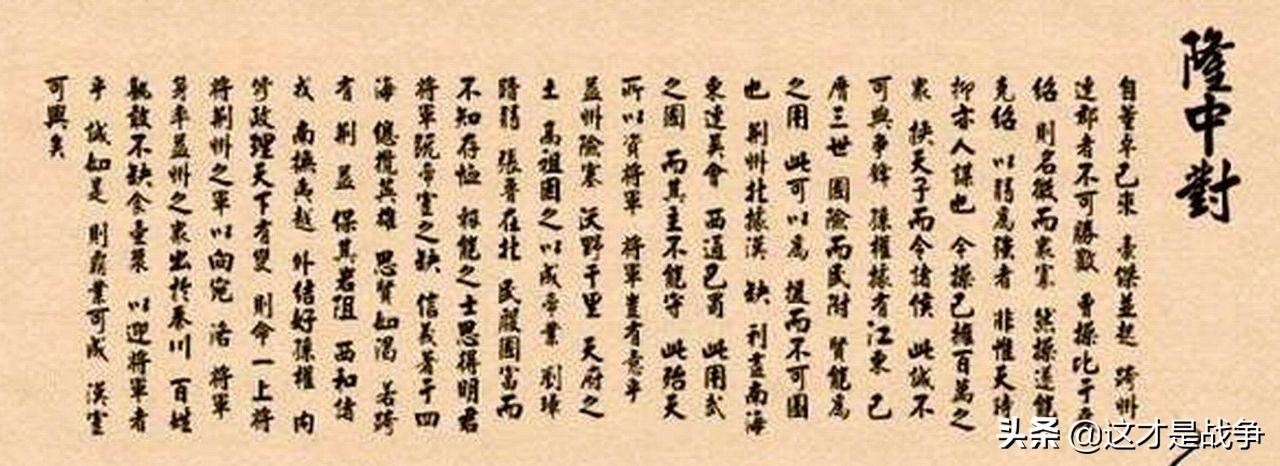 隆中對
自董卓已來 豪傑並起 跨州
連郡者不可勝數 曹操比于袁
紹 則名微而眾寡 然操遂能
克紹 以弱為強者 非惟天時
抑亦人謀也 今操已擁百萬之
眾 挾天子而令諸侯 此誠不
可與爭鋒 孫權據有江東 已
歷三世 國險而民附 賢能為
之用 此可以為 援而不可圖
也 荊州北據漢 缺 利盡南海
東連吳會 西通巴蜀 此用武
之國 而其主不能守 此殆天
所以資將軍 將軍豈有意乎
益州險塞 沃野千里 天府之
土 高祖因之以成帝業 劉璋
暗弱 張魯在北 民殷國富而
不知存恤 智能之士思得明君
將軍既帝室之缺 信義著于四
海 總攬英雄 思賢如渴 若跨
有 荊 益 保其岩阻 西和諸
戎 南撫夷越 外結好孫權 內
修政理天下有變 則命一上將
將荊州之軍以向宛 洛 將軍
身率益州之眾出於秦川 百姓
孰敢不缺食壺漿 以迎將軍者
乎 誠如是 則霸業可成 漢室
可興矣
头条 @这才是战争